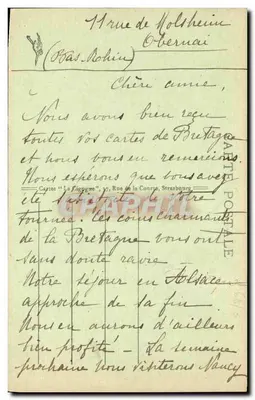 11 rue de Molsheim
Obernai
(Bas-Rhin)
Chéri anne,
Nous avons bien reçu
toutes vos cartes de Bretagne
et nous vous en remercions.
Nous esperons que vous avez
Cartes "La Cigogne", 37, Rue de la Course, Strasbourg
été satisfaits de votre
tournée. Les coins charmants
de la Bretagne vous ont
sans doute ravie
Notre séjour en Alsace
approche de sa fin
Nous en aurons d'ailleurs
bien profité - La semaine
prochaine nous visiterons Nancy
CARTE POSTALE
CartePostale